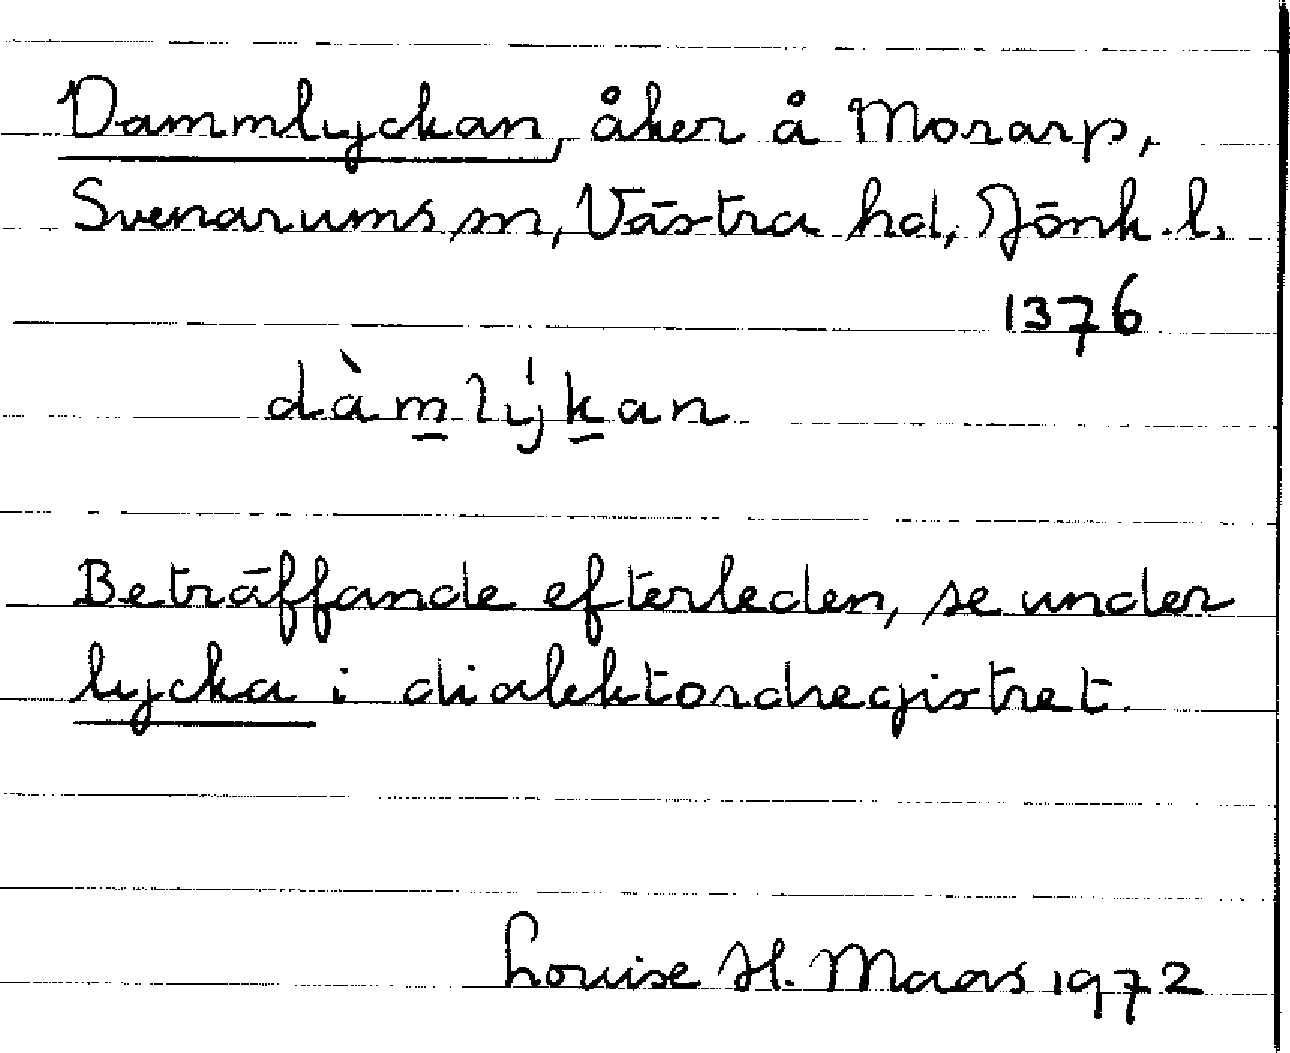 Dammlyckan, åker å Morarp,
Svenarums sn, Västra hd, Jönk. l.
1376
dàm̲lýk̲an
Beträffande efterleden, se under
lycka i dialektordregistret.
Louise H. Maas 1972